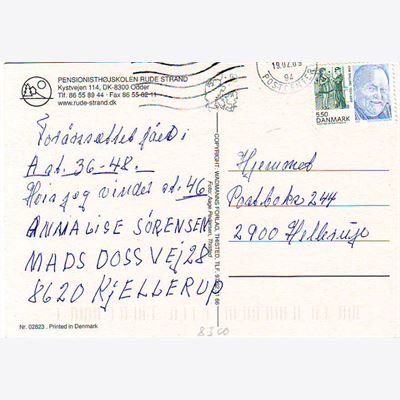 PENSIONISTHØJSKOLEN RUDE STRAND
Kystvejen 114, DK-8300 Odder
Tlf. 86 55 89 44 · Fax 86 55 82 11
www.rude-strand.dk
19.02.09
POSTCENTER
94
5.50
DANMARK
A at. 36-48.
Hvis jeg vinder at. 46
ANNALISE SÖRENSEN
MADS DOSSVEJ 28
8620 KJELLERUP
COPYRIGHT: WADMANNS FORLAG, THISTED, TLF.
Hjemmet
Postboks 244
2900 Hellerup
Nr. 02823 . Printed in Denmark
8300